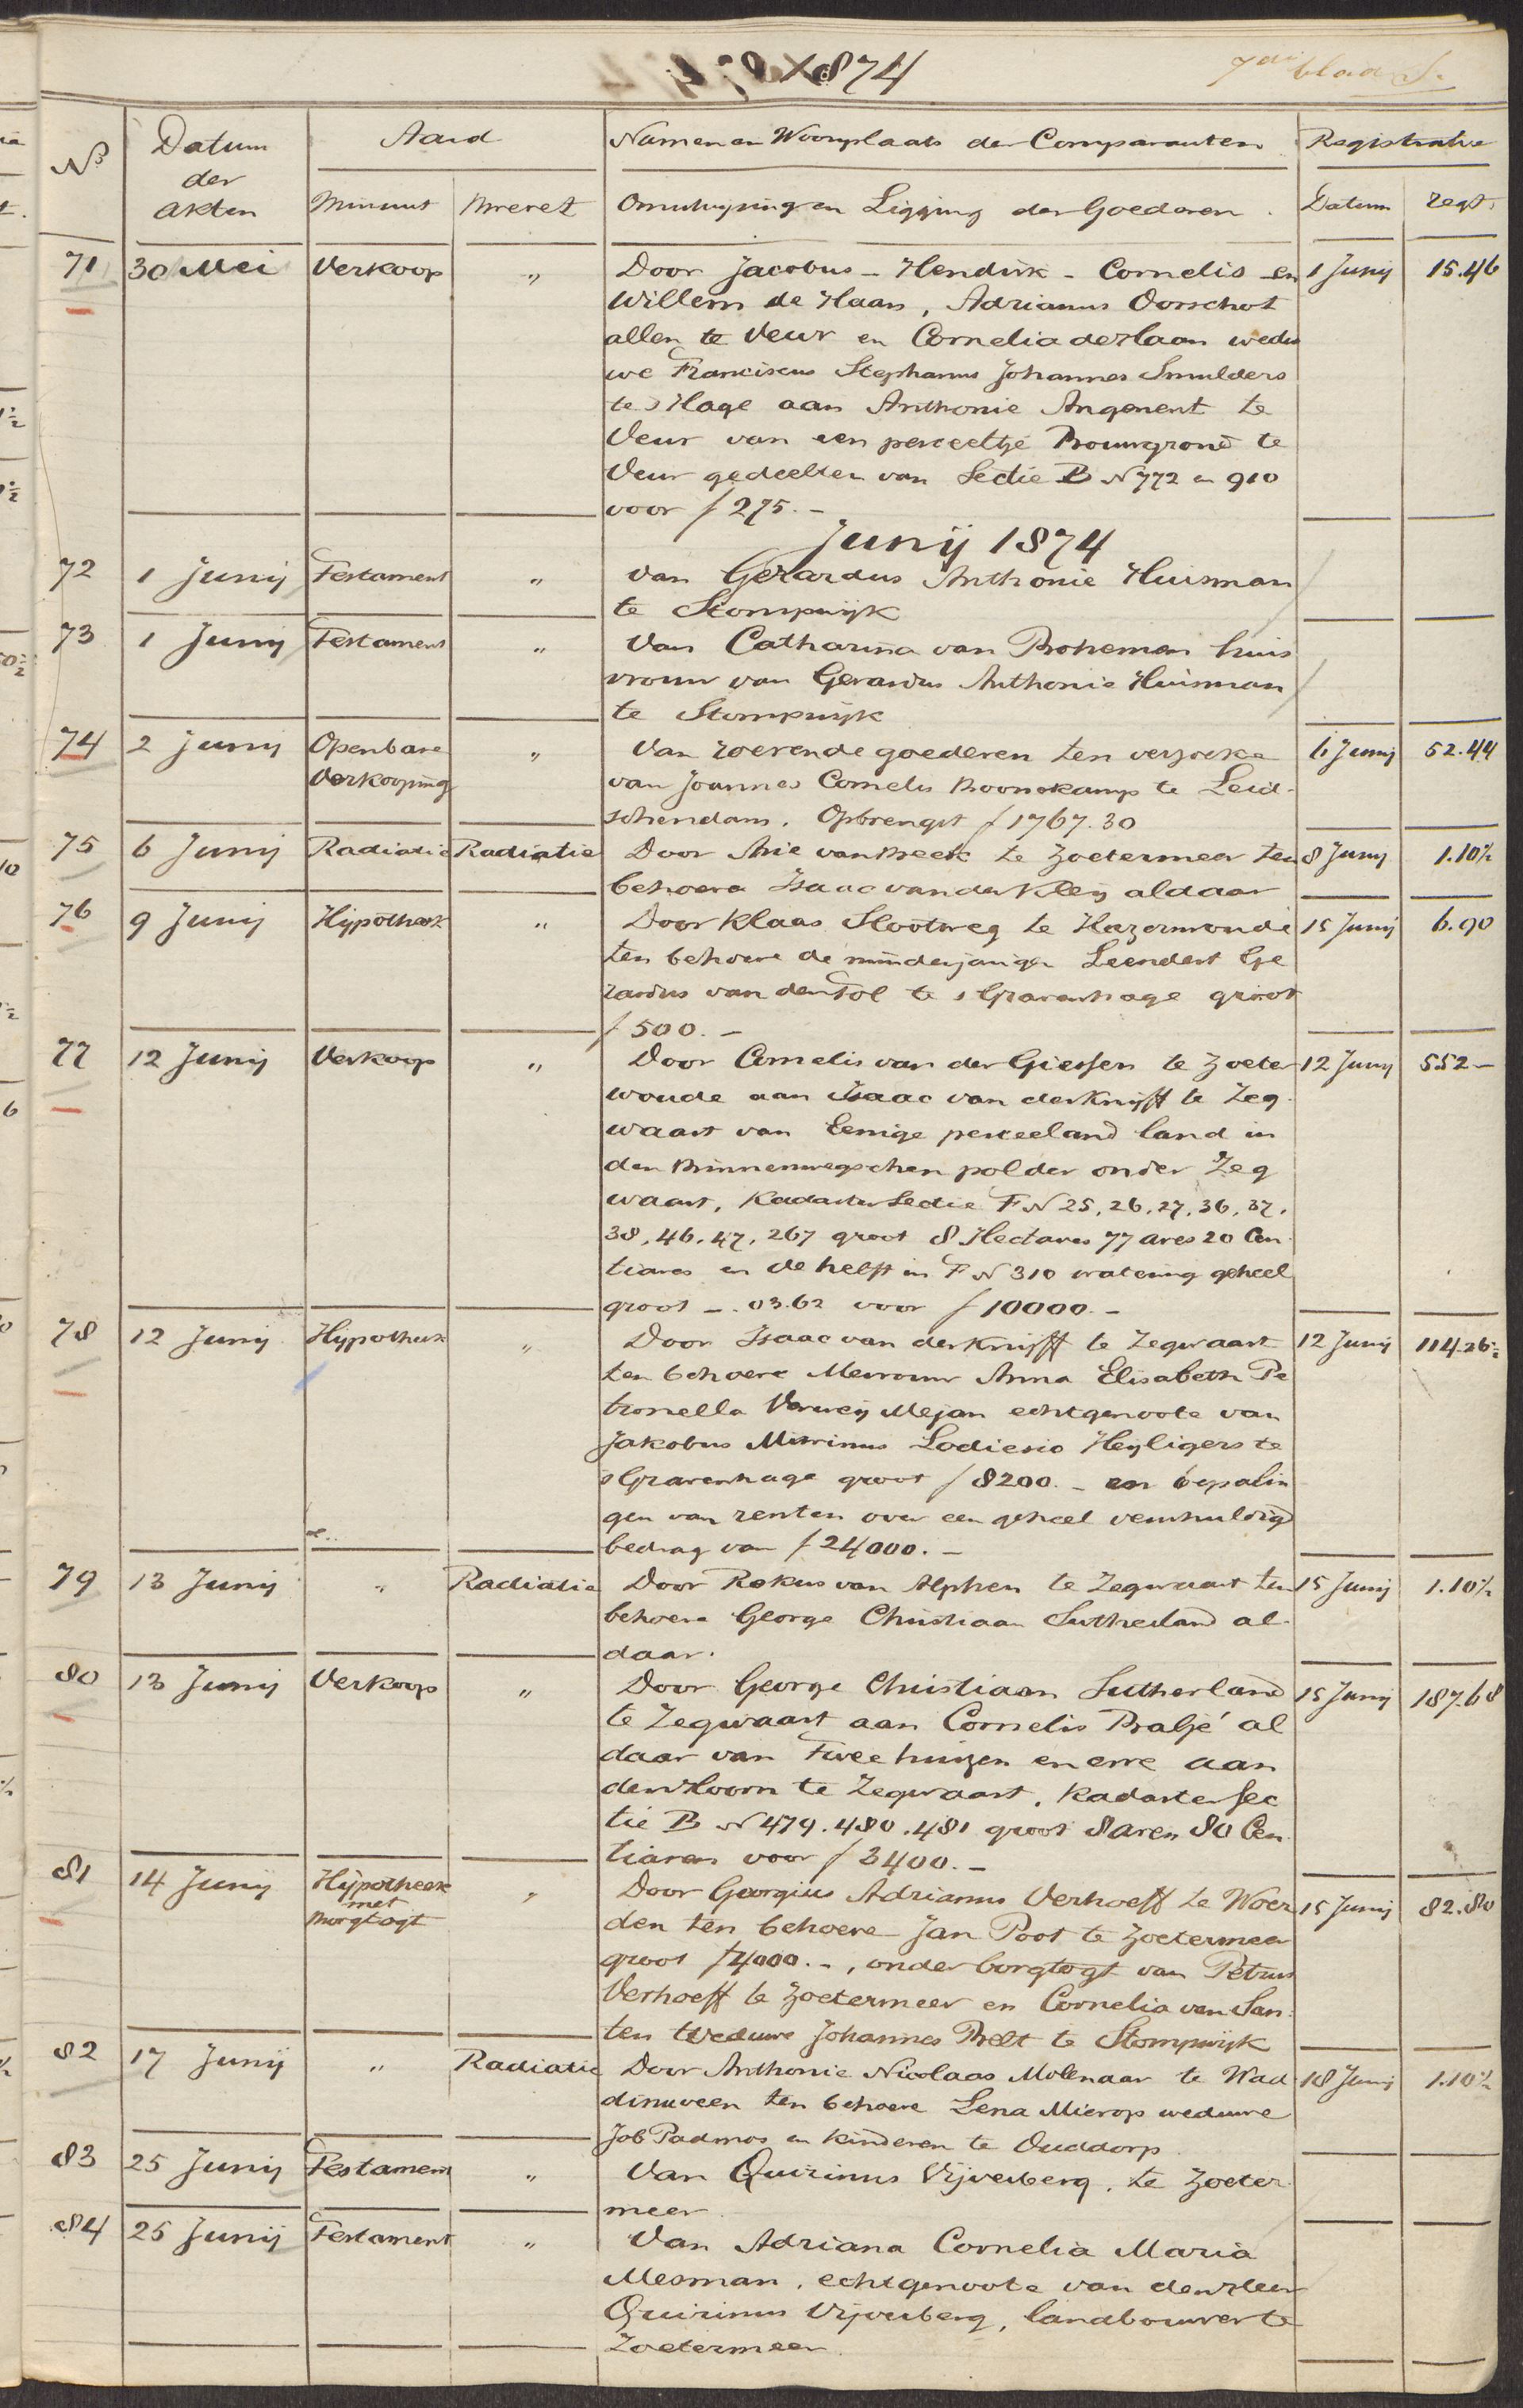 1874
7de blad S.
No
Datum der akten
Aard
Minuut
Brevet
Namen en Woonplaats der Comparanten
Omschrijving en Ligging der Goederen.
Registratie
Datum
regt.
71 30 Mei Verkoop " Door Jacobus - Hendrik - Cornelis en 1 Junij 15.46
Willem de Haas, Adrianus Oorschot
allen te Veur en Cornelia de Haas wedu
we Franciscus Stephanus Johannes Smulders
te s Hage aan Anthonie Angenent te
Veur van een perceeltje Bouwgrond te
Veur gedeelten van Sectie B N 772 en 910
voor f 275.-
Junij 1874
72 1 Junij Testament " van Gerardus Anthonie Huisman
te Stompwijk
73 1 Junij Testament " Van Catharina van Bohemen huis
vrouw van Gerardus Anthonie Huisman
te Stompwijk
74 2 Junij Openbare " Van roerende goederen ten verzoeke 6 Junij 52.44
Verkooping van Joannes Cornelis Boonekamp te Leid-
schendam. Opbrengst f 1767.30
75 6 Junij Radiatie Radiatie Door Arie van Beek te Zoetermeer ten 8 Junij 1.10½
behoeve Isaac van der Kleij aldaar
76 9 Junij Hijpotheek " Door Klaas Slootweg te Hazerswoude 15 Junij 6.90
ten behoeve de minderjarige Leendert Ge
rardus van den Tol te s Gravenhage groot
f 500.-
77 12 Junij Verkoop " Door Cornelis van der Giessen te Zoeter 12 Junij 552-
woude aan Isaac van der Knijff te Zeg-
waart van Eenige perceeland land in
den Binnenwegschen polder onder Zeg
waart, Kadaster Sectie F N 25, 26, 27, 36, 37,
38, 46, 47, 267 groot 8 Hectares 77 ares 20 Cen-
tiares en de helft in F N 310 watering geheel
groot -.03.62 voor f 10000.-
78 12 Junij Hijpotheek " Door Isaac van der Knijff te Zegwaart 12 Junij 114.26½
ten behoeve Mevrouw Anna Elisabeth Pe
tronella Verweij Mejan echtgenoote van
Jakobus Marinus Lodiesio Heijligers te
s Gravenhage groot f 8200.- en bepalin
gen van renten over een geheel verschuldigd
bedrag van f 24000.-
79 13 Junij " Radiatie Door Rokus van Alphen te Zegwaart ten 15 Junij 1.10½
behoeve George Christiaan Sutherland al-
daar.
80 13 Junij Verkoop " Door George Christiaan Sutherland 15 Junij 187.68
te Zegwaart aan Cornelis Baljé al
daar van Twee huizen en erve aan
den Hoorn te Zegwaart, Kadaster Sec
tie B N 479.480.481 groot 8 aren 80 Cen-
tiaren voor f 3400.-
81 14 Junij Hijpotheek " Door Georgius Adrianus Verhoeff te Woer 15 Junij 82.80
met den ten behoeve Jan Poot te Zoetermeer
Borgtogt groot f 4000.-, onder borgtogt van Petrus
Verhoeff te Zoetermeer en Cornelia van San-
ten Weduwe Johannes Belt te Stompwijk
82 17 Junij " Radiatie Door Anthonie Nicolaas Molenaar te Wad 18 Junij 1.10½
dinxveen ten behoeve Lena Mierop weduwe
Job Padmos en Kinderen te Ouddorp
83 25 Junij Testament " Van Quirinus Vijverberg, te Zoeter-
meer
84 25 Junij Testament " Van Adriana Cornelia Maria
Mesman, echtgenoote van den Heer
Quirinus Vijverberg, landbouwer te
Zoetermeer